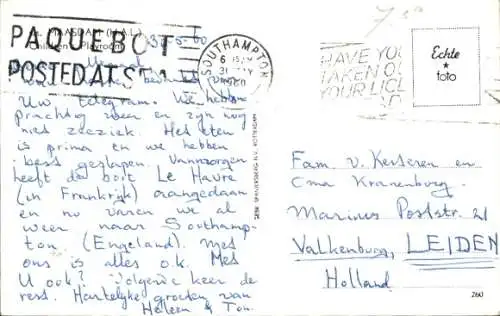 s.s. MAASDAM (H.A.L.)
Children's Playroom
PAQUEBOT
POSTED AT SEA
31-5-60
SOUTHAMPTON
6
31 MAY
1960
HAVE YOU
TAKEN OUT
YOUR LICENCE
Echte
*
foto
Uw telegram. We hebben
prachtig weer en zijn nog
niet zeeziek. Het eten
is prima en we hebben
best geslapen. Vanmorgen
heeft de boot Le Havre
(in Frankrijk) aangedaan
en nu varen we al
weer naar Southamp-
ton. (Engeland). Met
ons is alles o.k. Met
U ook? Volgende keer de
rest. Hartelijke groeten van
Heleen & Ton.
Fam. v. Kesteren en
Oma Kranenburg.
Marinus Poststr. 21
Valkenburg, LEIDEN
Holland
260